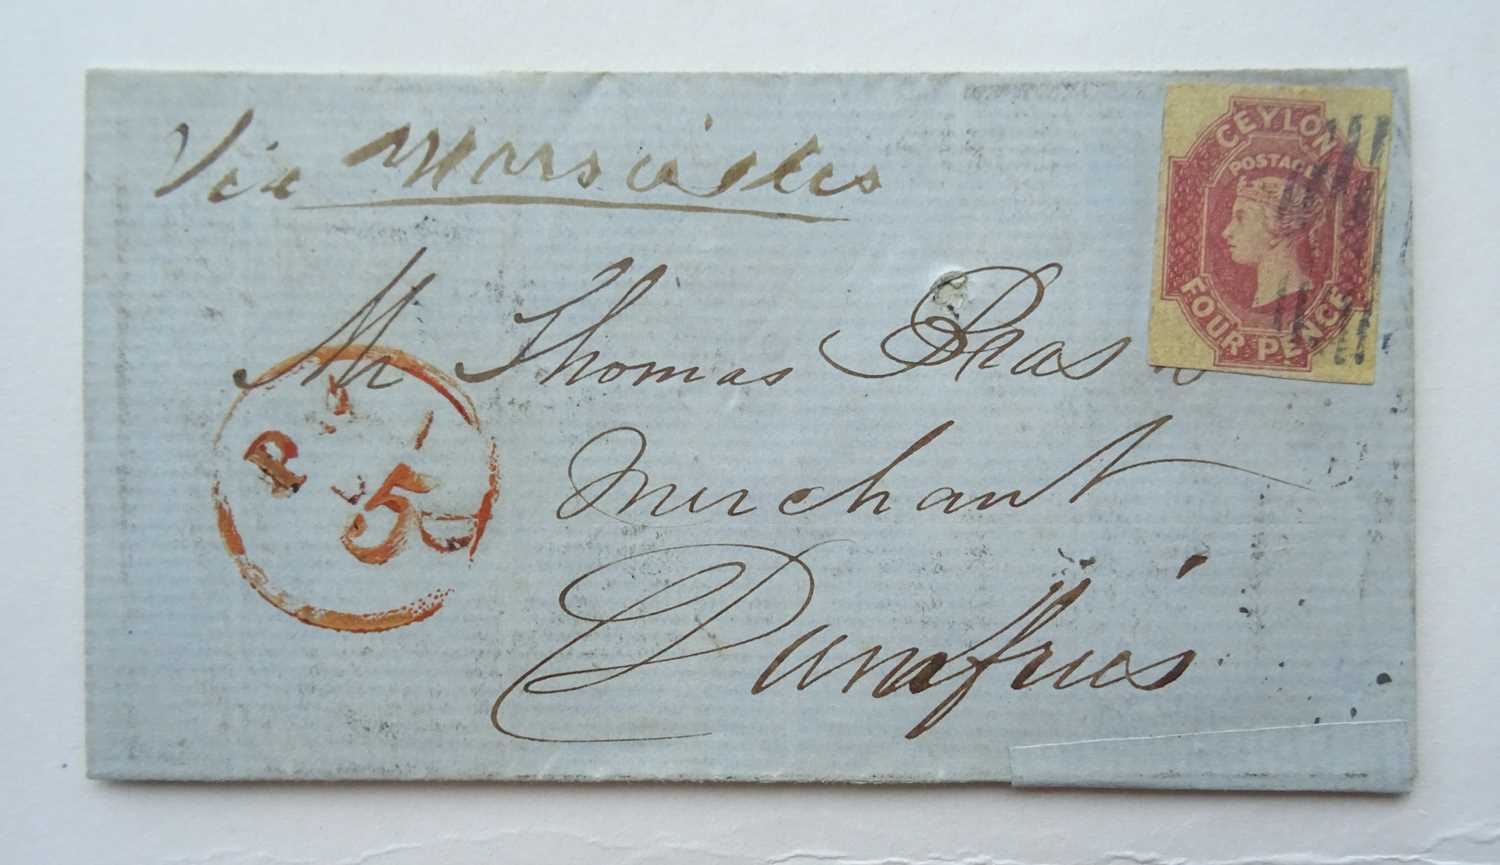 Via Marseilles
CEYLON
POSTAGE
FOUR PENCE
Mr Thomas
Merchant
Dumfries
P
5